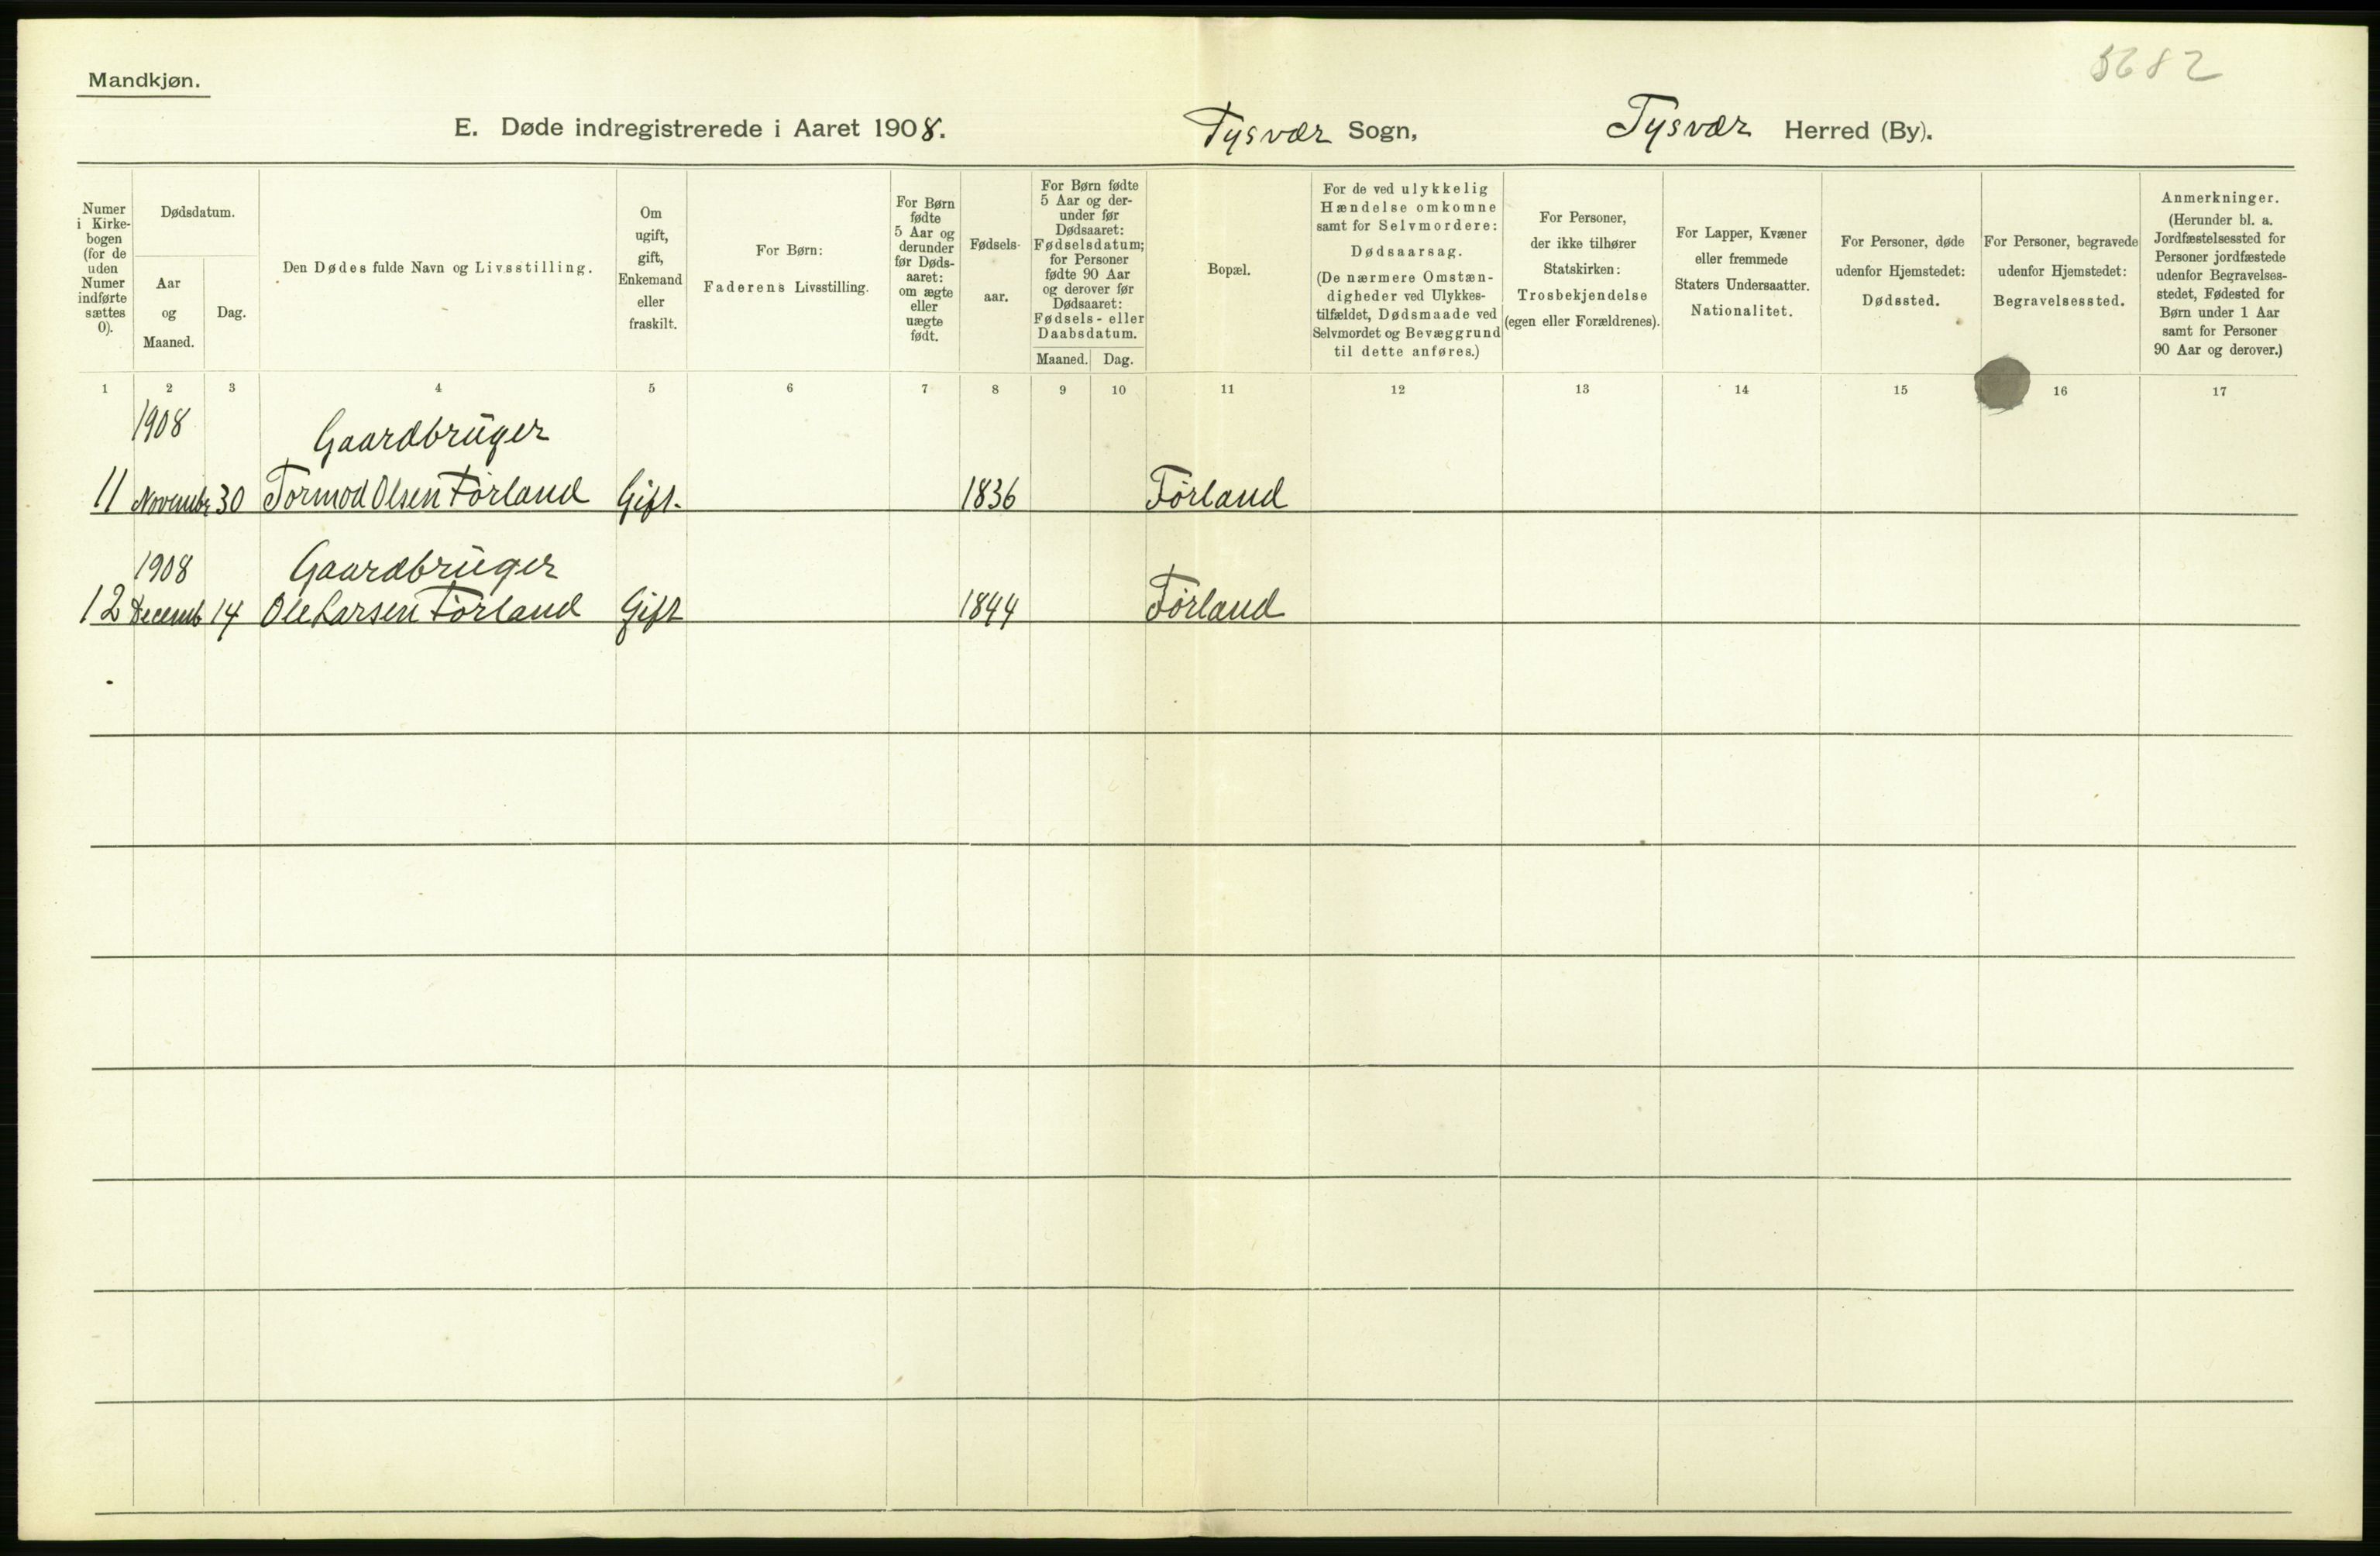 5682
Mandkjøn.
E. Døde indregistrerede i Aaret 1908. Tysvær Sogn, Tysvær Herred (By).
Numer
i Kirke-
bogen
(for de
uden
Numer
indførte
sættes
0).
Dødsdatum.
Aar
og
Maaned.
Dag.
Den Dødes fulde Navn og Livsstilling.
Om
ugift,
gift,
Enkemand
eller
fraskilt.
For Børn:
Faderens Livsstilling.
For Børn
fødte
5 Aar og
derunder
før Døds-
aaret:
om ægte
eller
uægte
født.
Fødsels-
aar.
For Børn fødte
5 Aar og der-
under før
Dødsaaret:
Fødselsdatum;
for Personer
fødte 90 Aar
og derover før
Dødsaaret:
Fødsels- eller
Daabsdatum.
Maaned. Dag.
Bopæl.
For de ved ulykkelig
Hændelse omkomne
samt for Selvmordere:
Dødsaarsag.
(De nærmere Omstæn-
digheder ved Ulykkes-
tilfældet, Dødsmaade ved
Selvmordet og Bevæggrund
til dette anføres.)
For Personer,
der ikke tilhører
Statskirken:
Trosbekjendelse
(egen eller Forældrenes).
For Lapper, Kvæner
eller fremmede
Staters Undersaatter.
Nationalitet.
For Personer, døde
udenfor Hjemstedet:
Dødssted.
For Personer, begravede
udenfor Hjemstedet:
Begravelsessted.
Anmerkninger.
(Herunder bl. a.
Jordfæstelsessted for
Personer jordfæstede
udenfor Begravelses-
stedet, Fødested for
Børn under 1 Aar
samt for Personer
90 Aar og derover.)
1 2 3 4 5 6 7 8 9 10 11 12 13 14 15 16 17
1908 Gaardbruger
11 Novembr 30 Tormod Olsen Førland Gift. 1836 Førland
1908 Gaardbruger
12 Decemb 14 Ole Larsen Førland Gift 1844 Førland